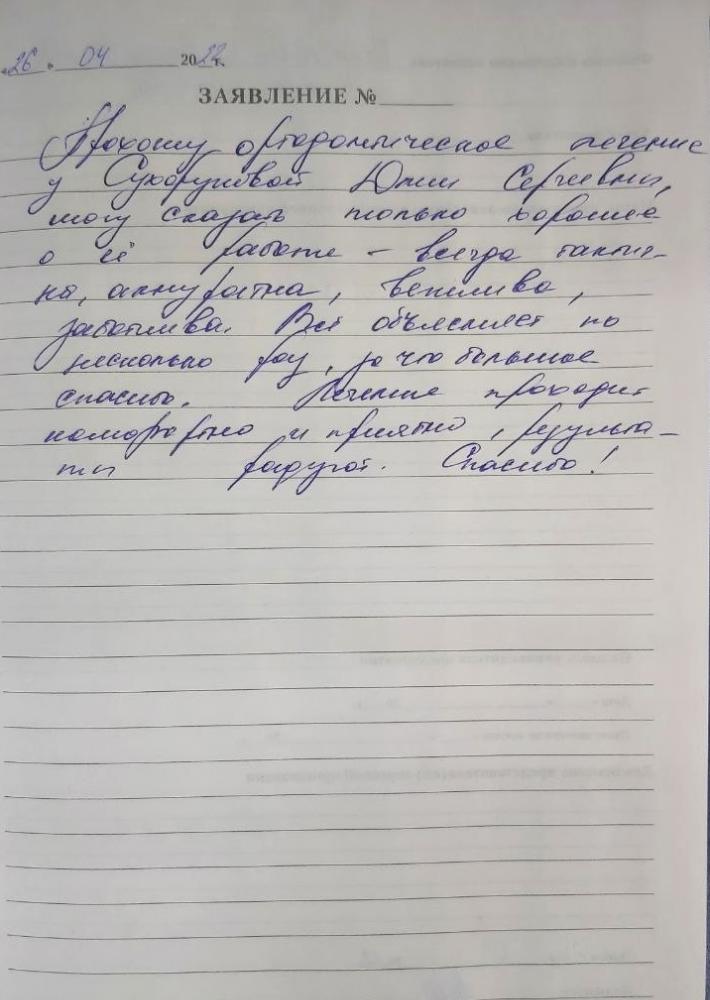 «26» 04 2022 г.
ЗАЯВЛЕНИЕ №
Прохожу ортодонтическое лечение
у Сухоруковой Юлии Сергеевны,
могу сказать только хорошее
о её работе – всегда тактич-
на, аккуратна, вежлива,
заботлива. Всё объясняет по
несколько раз, за что большое
спасибо. Лечение проходит
комфортно и приятно, результа-
ты радуют. Спасибо!